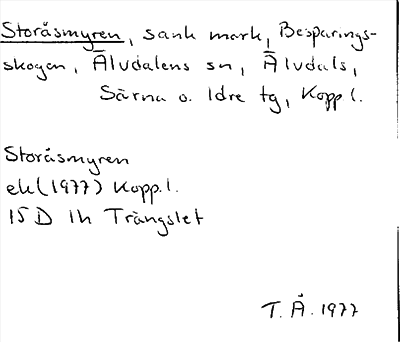 Storåsmyren, sank mark, Besparings-
skogen, Älvdalens sn, Älvdals,
Särna o. Idre tg, Kopp l.
Storåsmyren
ek (1977) Kopp. l.
15 D 1h Trängslet
T. Å. 1977